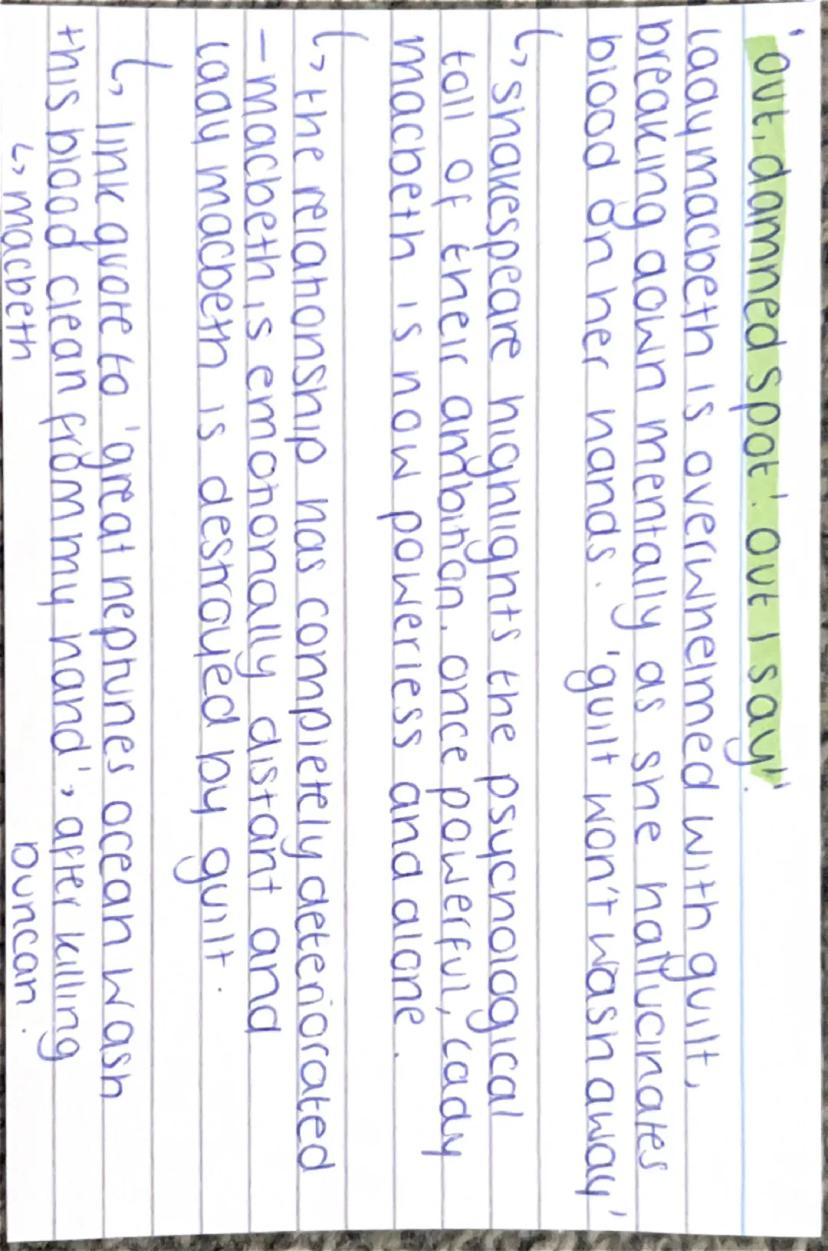 'out, damned spot! out I say!'
lady macbeth is overwhelmed with guilt,
breaking down mentally as she hallucinates
blood on her hands. 'guilt won't wash away'
↳ shakespeare highlights the psychological
toll of their ambition. once powerful, lady
macbeth is now powerless and alone.
↳ the relationship has completely deteriorated
- macbeth is emotionally distant and
lady macbeth is destroyed by guilt.
↳ link quote to 'great neptunes ocean wash
this blood clean from my hand', after killing
↳ macbeth duncan.